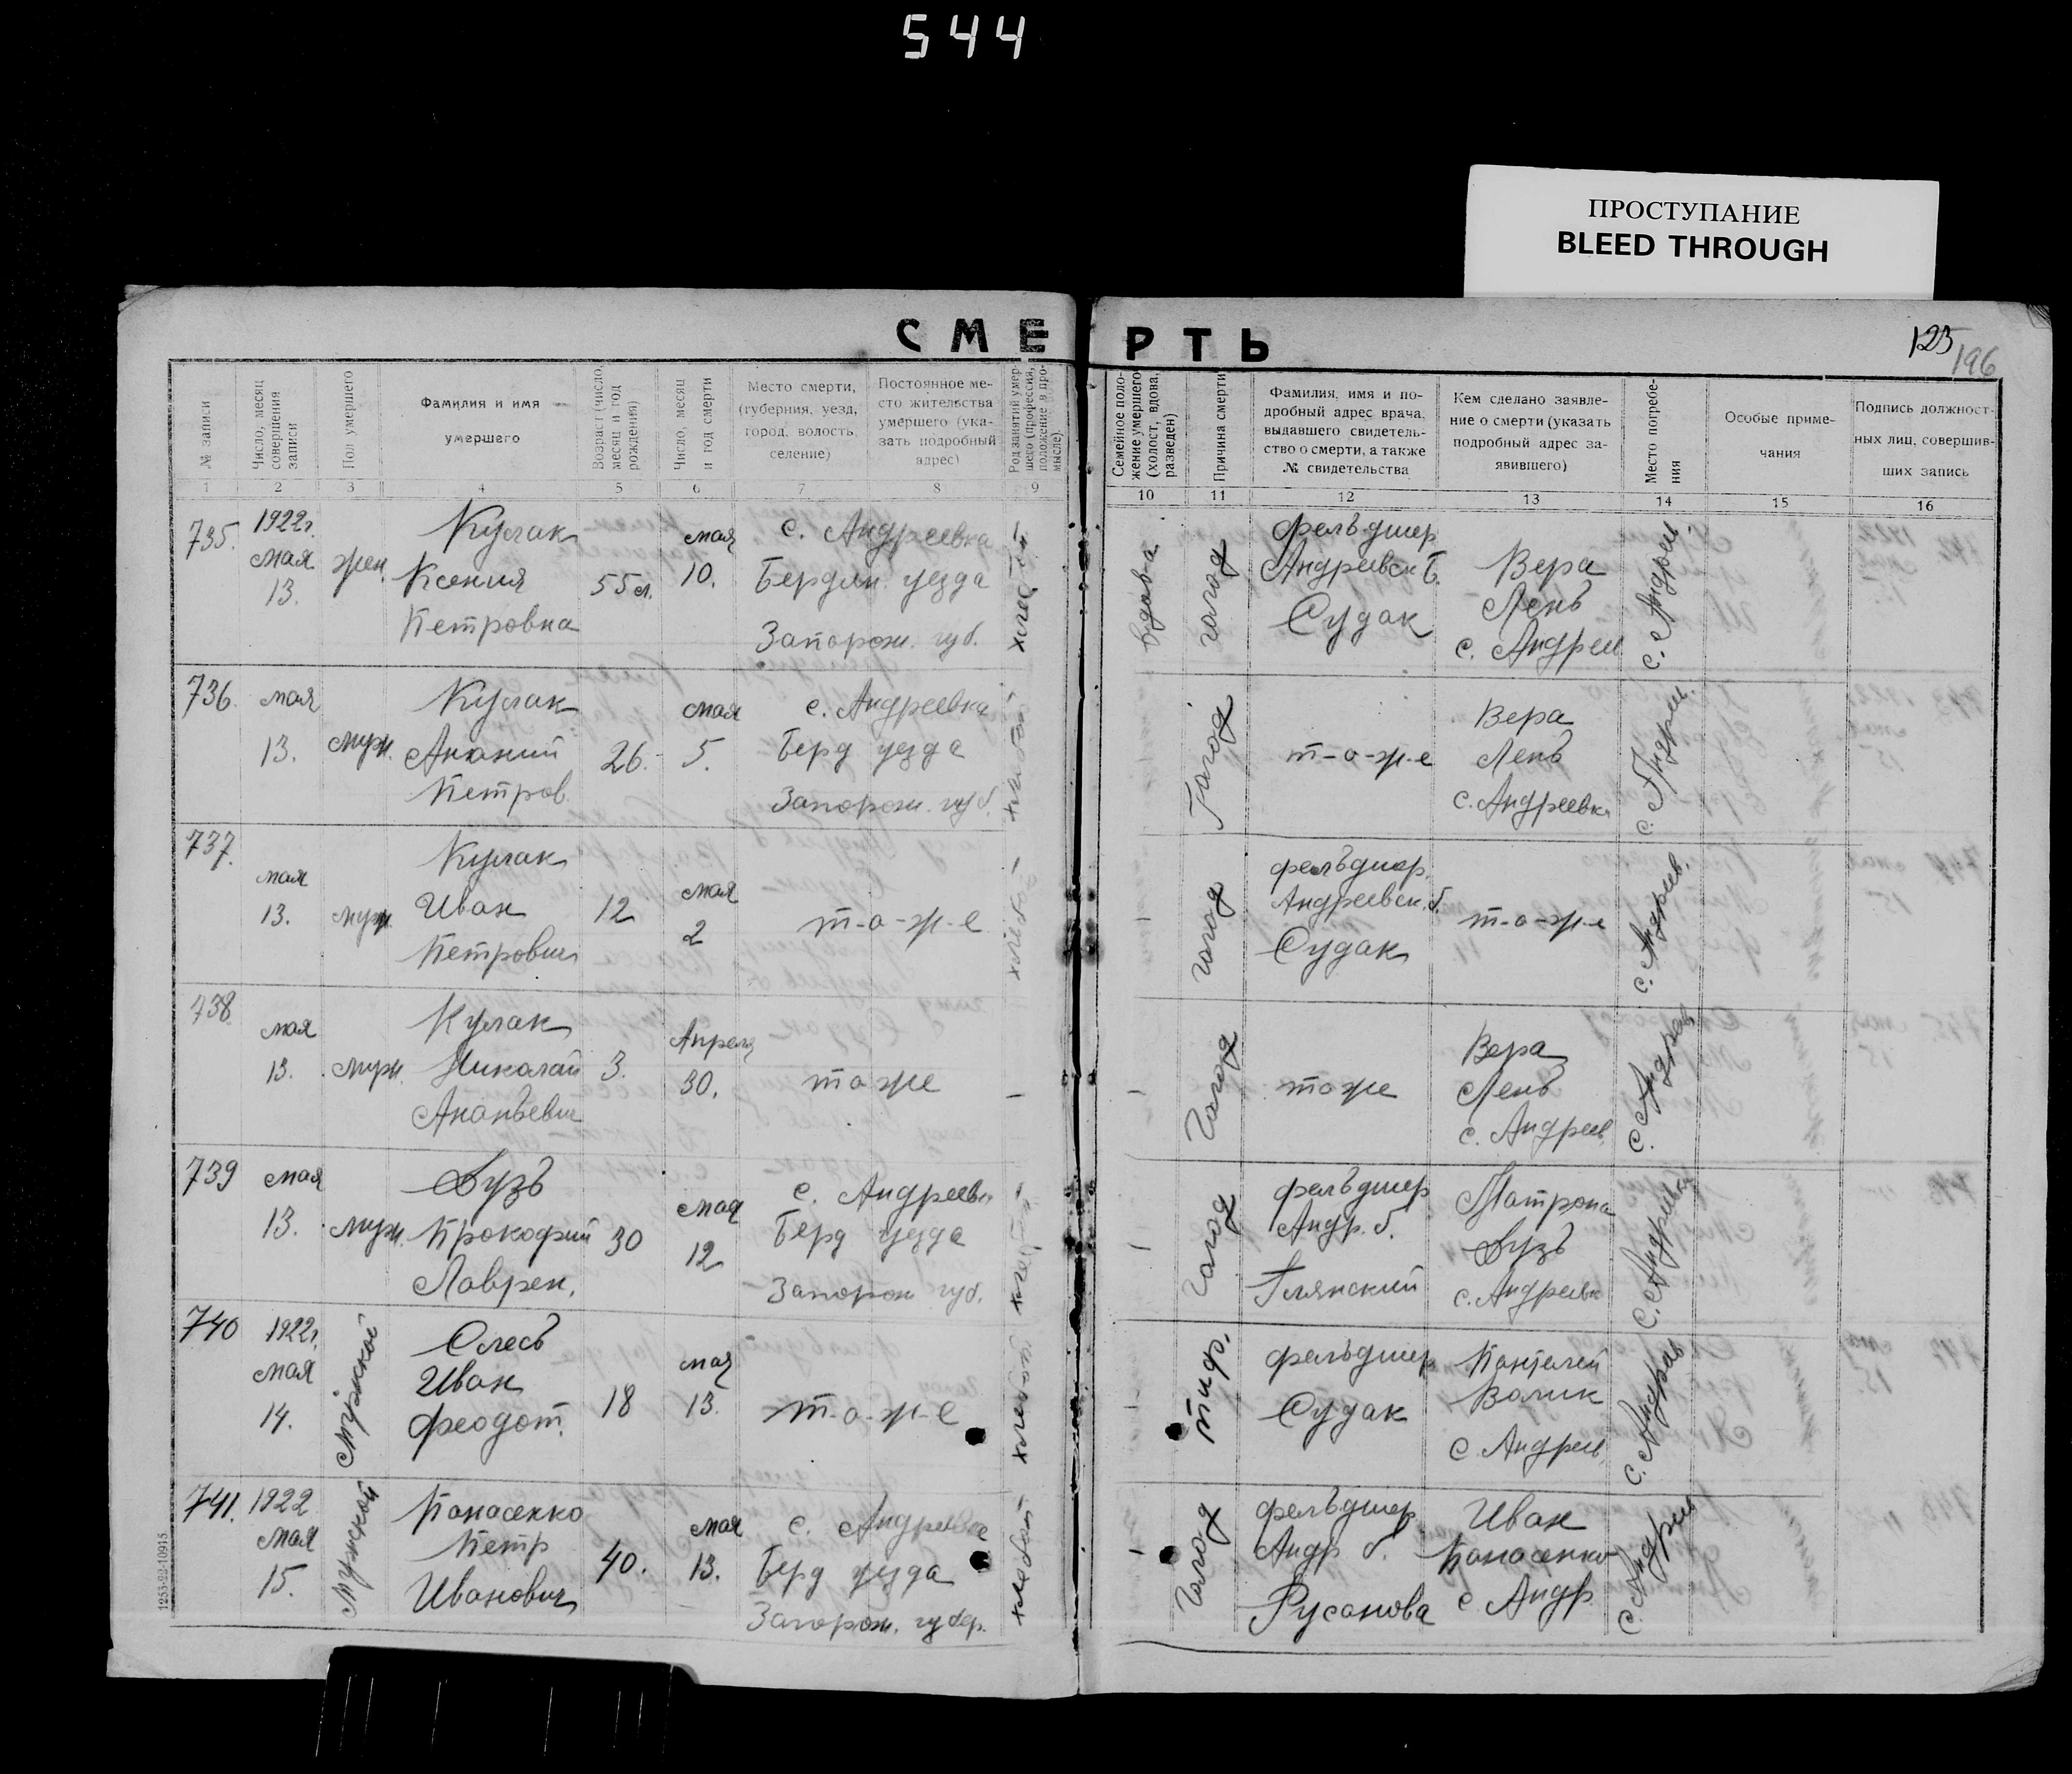 544
ПРОСТУПАНИЕ
BLEED THROUGH
СМЕРТЬ
125
196
№ записи
Число, месяц совершения записи
Пол умершего
Фамилия и имя умершего
Возраст (число, месяц и год рождения)
Число, месяц и год смерти
Место смерти, (губерния, уезд, город, волость, селение)
Постоянное место жительства умершего (указать подробный адрес)
Род занятий умершего (профессия, положение в промысле).
Семейное положение умершего (холост, вдова, разведен)
Причина смерти
Фамилия, имя и подробный адрес врача, выдавшего свидетельство о смерти, а также № свидетельства
Кем сделано заявление о смерти (указать подробный адрес заявившего)
Место погребения
Особые примечания
Подпись должностных лиц, совершивших запись
1 2 3 4 5 6 7 8 9 10 11 12 13 14 15 16
735.
1922г.
мая
13.
жен.
Кулак
Ксения
Петровна
55 л.
мая
10.
с. Андреевка
Бердян. уезда
Запорож. губ.
хлебоп
вдова
голод
фельдшер
Андреевск б.
Судак
Вера
Лень
с. Андреев
с. Андреев
736.
мая
13.
муж.
Кулак
Ананий
Петров.
26.
мая
5.
с. Андреевка
Берд уезда
Запорож. губ.
хлебоп
Голод
т-о-ж-е
Вера
Лень
с. Андреевка
с. Андреев.
737.
мая
13.
муж
Кулак
Иван
Петрович
12
мая
2
т-о-ж-е
хлебоп
-
голод
фельдшер.
Андреевск. б.
Судак
т-о-ж-е
с. Андреев.
738.
мая
13.
муж.
Кулак
Николай
Ананьевич
3.
Апреля
30.
тоже
-
-
Голод
тоже
Вера
Лень
с. Андреев.
с. Андреев
739
мая
13.
муж.
Бузь
Прокофий
Лаврен.
30
мая
12
с. Андреевк
Берд уезда
Запорож губ.
хлебоп
-
Голод
фельдшер
Андр. б.
Глянский
Матрона
Бузь
с. Андреевк
с. Андреевка
740
1922г.
мая
14.
Мужской
Олесь
Иван
Феодот.
18
мая
13.
т-о-ж-е
хлебоп
-
тиф.
фельдшер
Судак
Пантелей
Волик
с. Андреев.
с. Андреев
741.
1922
мая
15.
Мужской
Панасенко
Петр
Иванович
40.
мая
13.
с. Андреевке
Берд уезда
Запорож. губер.
хлебоп
-
Голод
фельдшер
Андр б.
Русанова
Иван
Панасенко
с Андр.
с. Андреев
1253-22-10915